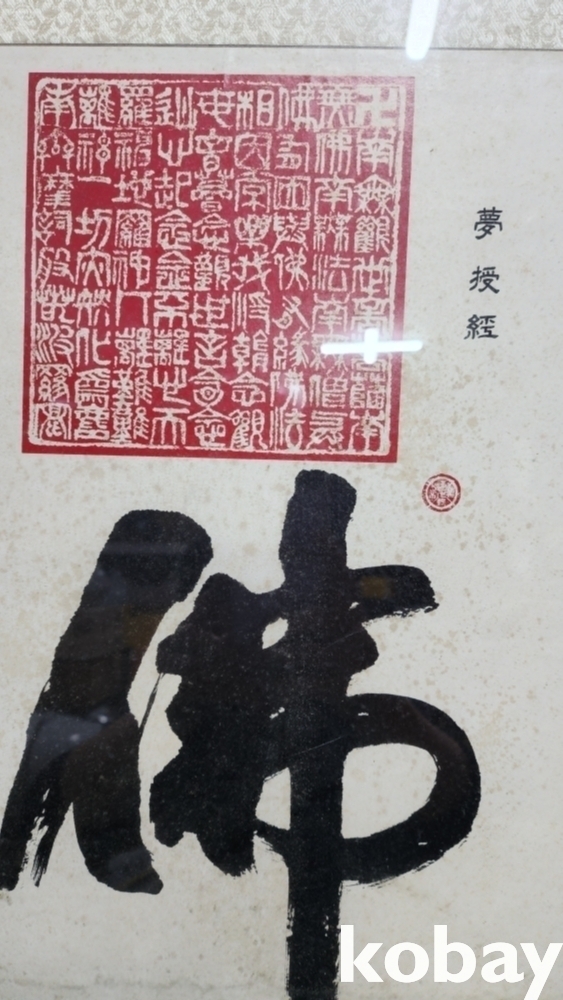 夢授經
卍南無觀世音菩薩南
無佛南無法南無僧與
佛有因與佛有緣佛法
相因常樂我淨朝念觀
世音暮念觀世音念念
從心起念念不離心天
羅神地羅神人離難難
離身一切災殃化爲塵
南無摩訶般若波羅蜜
佛
kobay